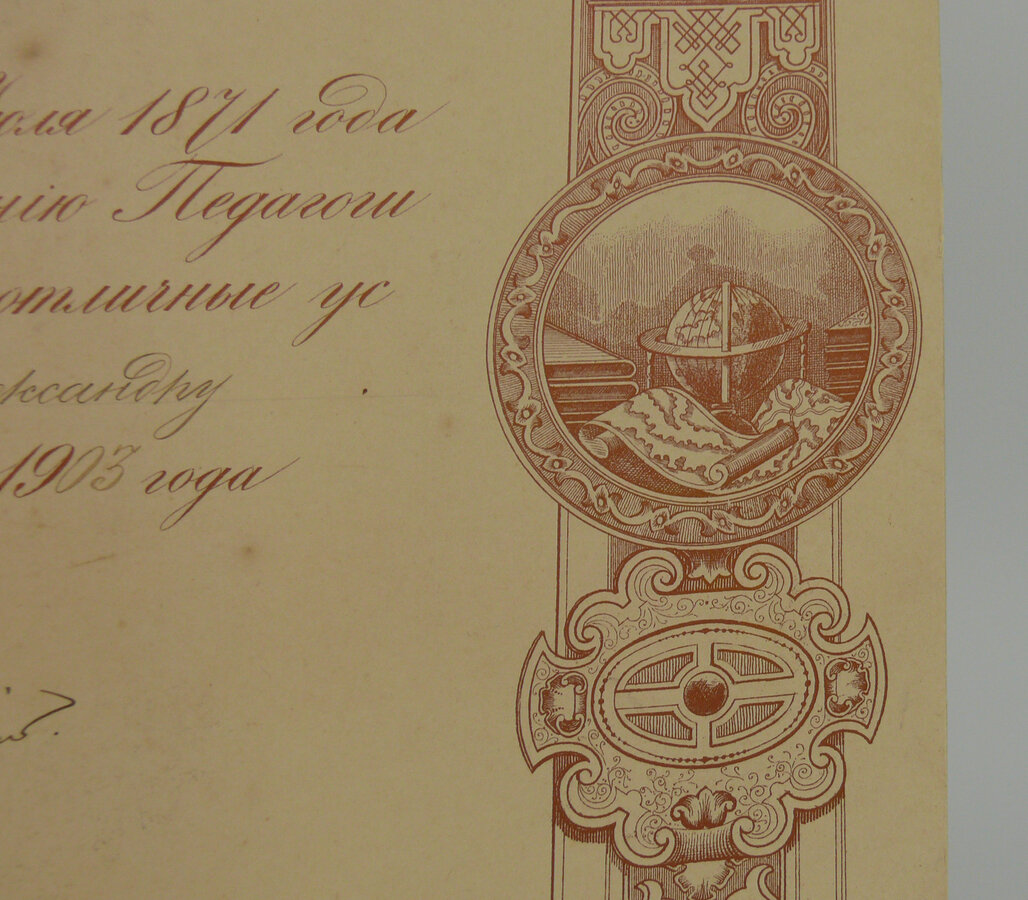 юля 1871 года
нію Педагоги
отличные ус
ександру
1903 года